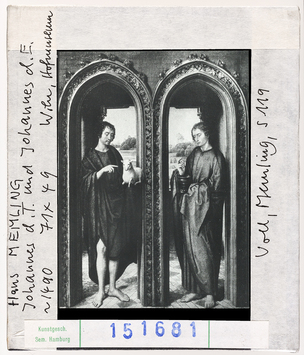 Hans MEMLING
Johannes d. T. und Johannes d. E.
~ 1490 71 x 49 Wien, Hofmuseum
Voll, Memling, S 119
Kunstgesch.
Sem. Hamburg
151681